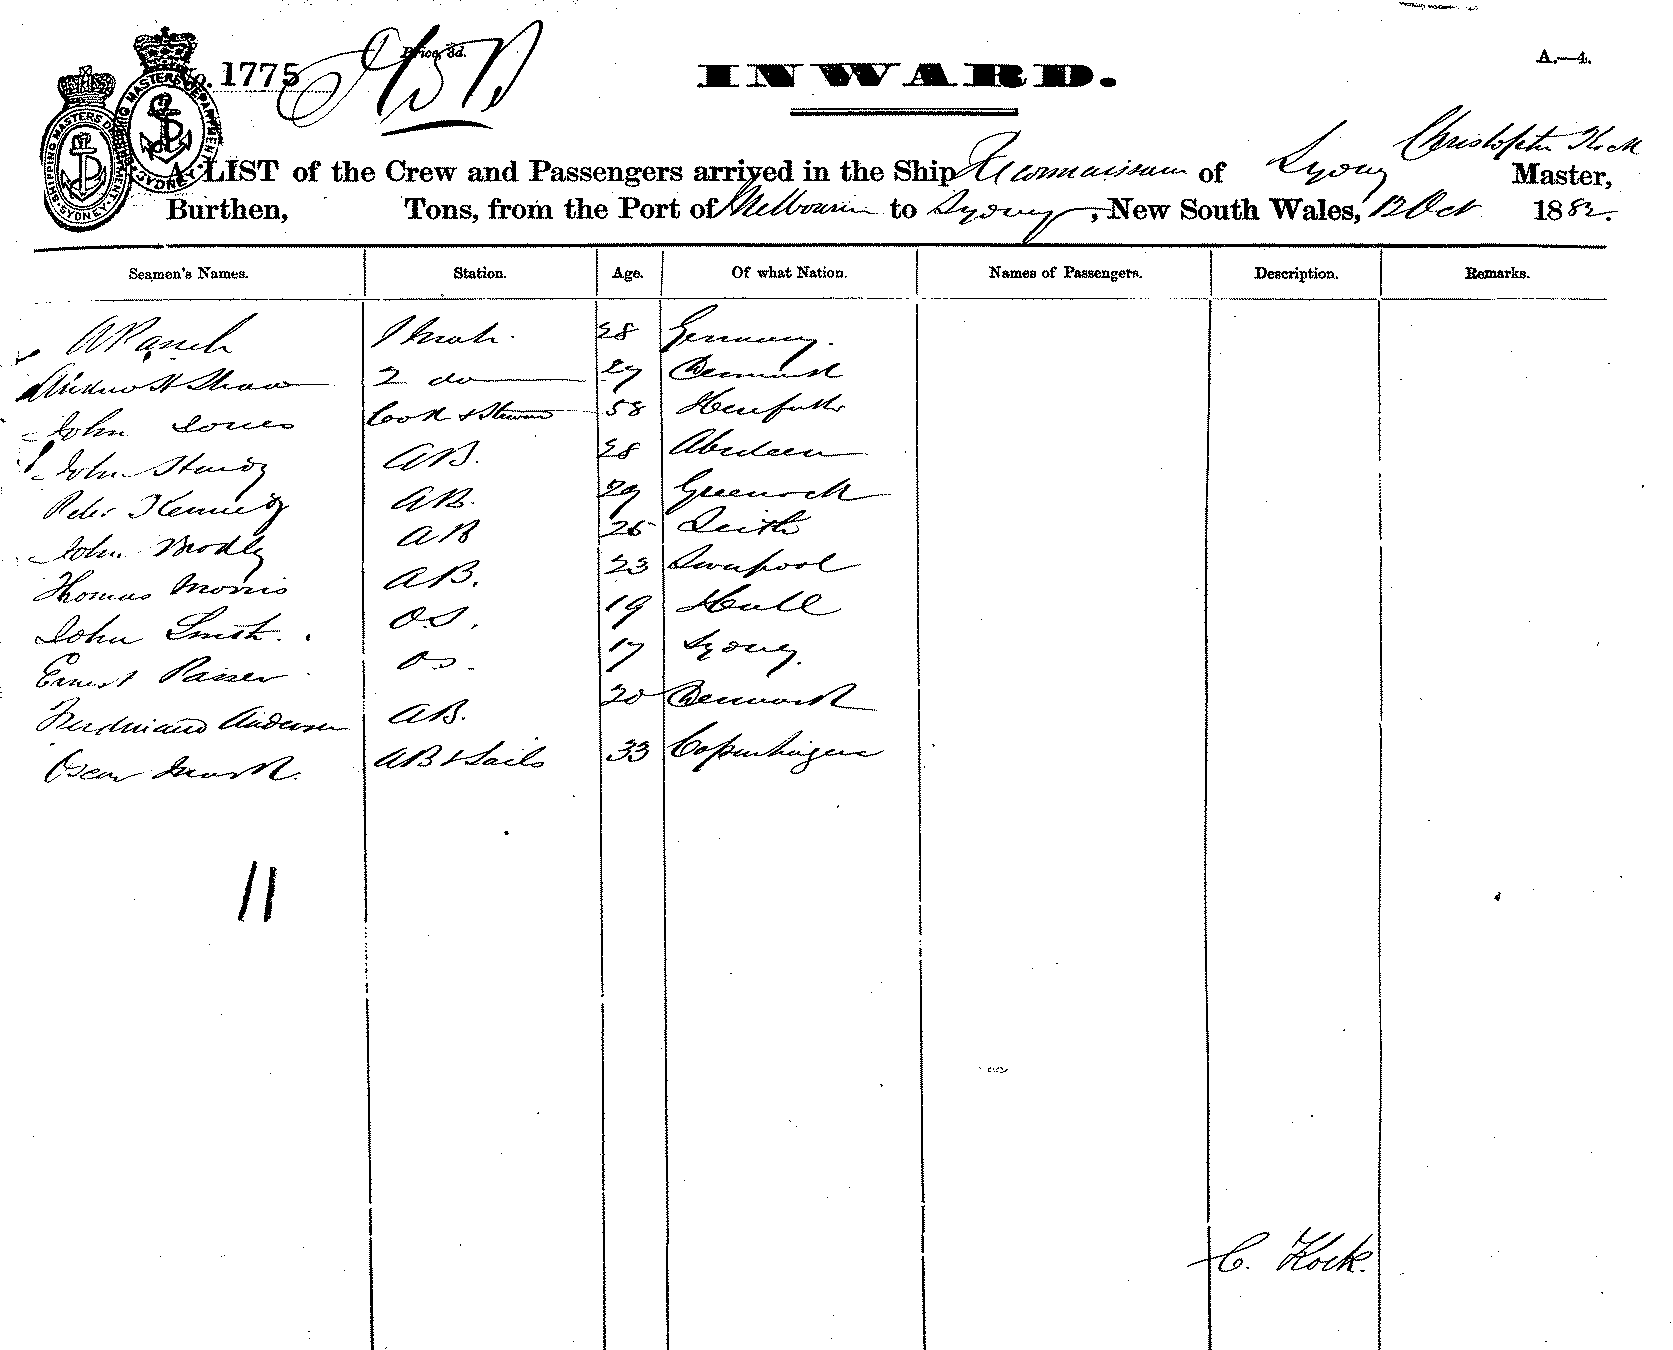 Price, 3d.
A.—4.
No. 1775
INWARD.
Christopher Kock
A LIST of the Crew and Passengers arrived in the Ship of Sydney Master,
Burthen, Tons, from the Port of Melbourne to Sydney, New South Wales, 12 Oct 1882.
Seamen's Names. Station. Age. Of what Nation. Names of Passengers. Description. Remarks.
1 Mate. 28 Germany.
2 do 27 Denmark
John Jones Cook & Steward 58
John AB. 28 Aberdeen
Peter Kennedy AB. 29 Greenock
John AB 26 Leith
Thomas Morris AB. 23 Liverpool
John Smith. OS. 19 Hull
Ernest OS. 17 Sydney.
Ferdinand Andersen AB. 20 Denmark
Oscar AB & Sails 33 Copenhagen
11
C. Kock.